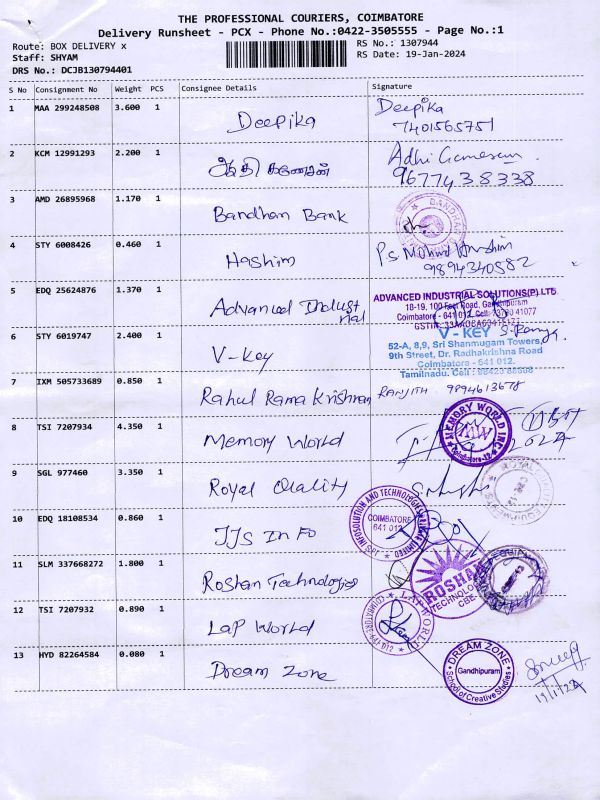 THE PROFESSIONAL COURIERS, COIMBATORE
Delivery Runsheet - PCX - Phone No.:0422-3505555 - Page No.:1
Route: BOX DELIVERY x
RS No.: 1307944
Staff: SHYAM
RS Date: 19-Jan-2024
DRS No.: DCJB130794401
S No Consignment No Weight PCS Consignee Details Signature
1 MAA 299248508 3.600 1 Deepika Deepika
7401565751
2 KCM 12991293 2.200 1 ஆதி கணேசன் Adhi Ganesan
9677438338
3 AMD 26895968 1.170 1 Bandhan Bank
BANDHAN
4 STY 6008426 0.460 1 Hashim P.S
9894340582
5 EDQ 25624876 1.370 1 Advanced Industrial
ADVANCED INDUSTRIAL SOLUTIONS(P) LTD.
18-19, 100 Feet Road, Gandhipuram
Coimbatore - 641 012.
6 STY 6019747 2.400 1 V-Key
V - KEY
52-A, 8,9, Sri Shanmugam Towers,
9th Street, Dr. Radhakrishna Road
Coimbatore - 641 012.
Tamilnadu. Cell :
7 IXM 505733689 0.850 1 Rahul Rama Krishnan RANJITH. 9894613678
8 TSI 7207934 4.350 1 Memory World
MEMORY WORLD INC
MW
9 SGL 977460 3.350 1 Royal Quality
ROYAL
10 EDQ 18108534 0.860 1 JJS Info
COIMBATORE
641 012
11 SLM 337668272 1.800 1 Roshan Technologies
ROSHAN
TECHNOLOGIES
CBE
12 TSI 7207932 0.890 1 Lap World
LAP WORLD
13 HYD 82264584 0.080 1 Dream Zone
DREAM ZONE
Gandhipuram
School of Creative Studies
19/1/24